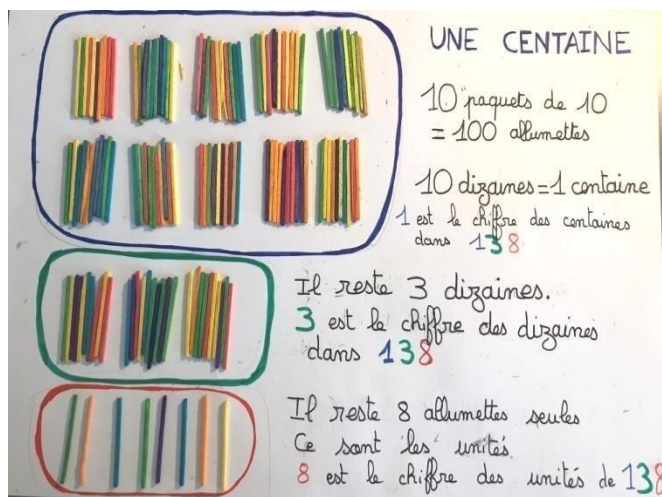 UNE CENTAINE
10 paquets de 10
= 100 allumettes
10 dizaines = 1 centaine
1 est le chiffre des centaines
dans 138
Il reste 3 dizaines.
3 est le chiffre des dizaines
dans 138
Il reste 8 allumettes seules
Ce sont les unités.
8 est le chiffre des unités de 138